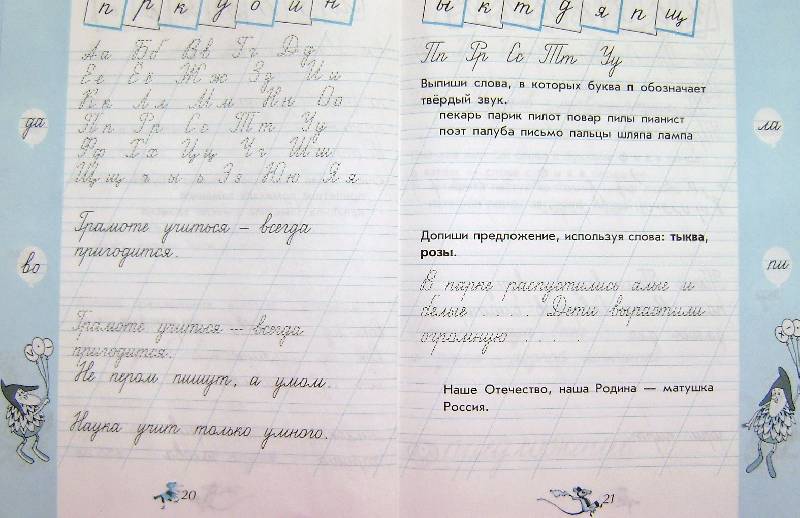 п р к у о й н
Аа Бб Вв Гг Дд
Ее Ёё Жж Зз Ии
Кк Лл Мм Нн Оо
Пп Рр Сс Тт Уу
Фф Хх Цц Чч Шш
Щщ ъ ы ь Ээ Юю Яя
Грамоте учиться – всегда
пригодится.
Грамоте учиться --- всегда
пригодится.
Не пером пишут, а умом.
Наука учит только умного.
да
во
20
ы к т д я п щ
Пп Рр Сс Тт Уу
Выпиши слова, в которых буква п обозначает
твёрдый звук.
пекарь парик пилот повар пилы пианист
поэт палуба письмо пальцы шляпа лампа
Допиши предложение, используя слова: тыква,
розы.
В парке распустились алые и
белые . . . . . Дети вырастили
огромную . . . . .
Наше Отечество, наша Родина — матушка
Россия.
ла
пи
21